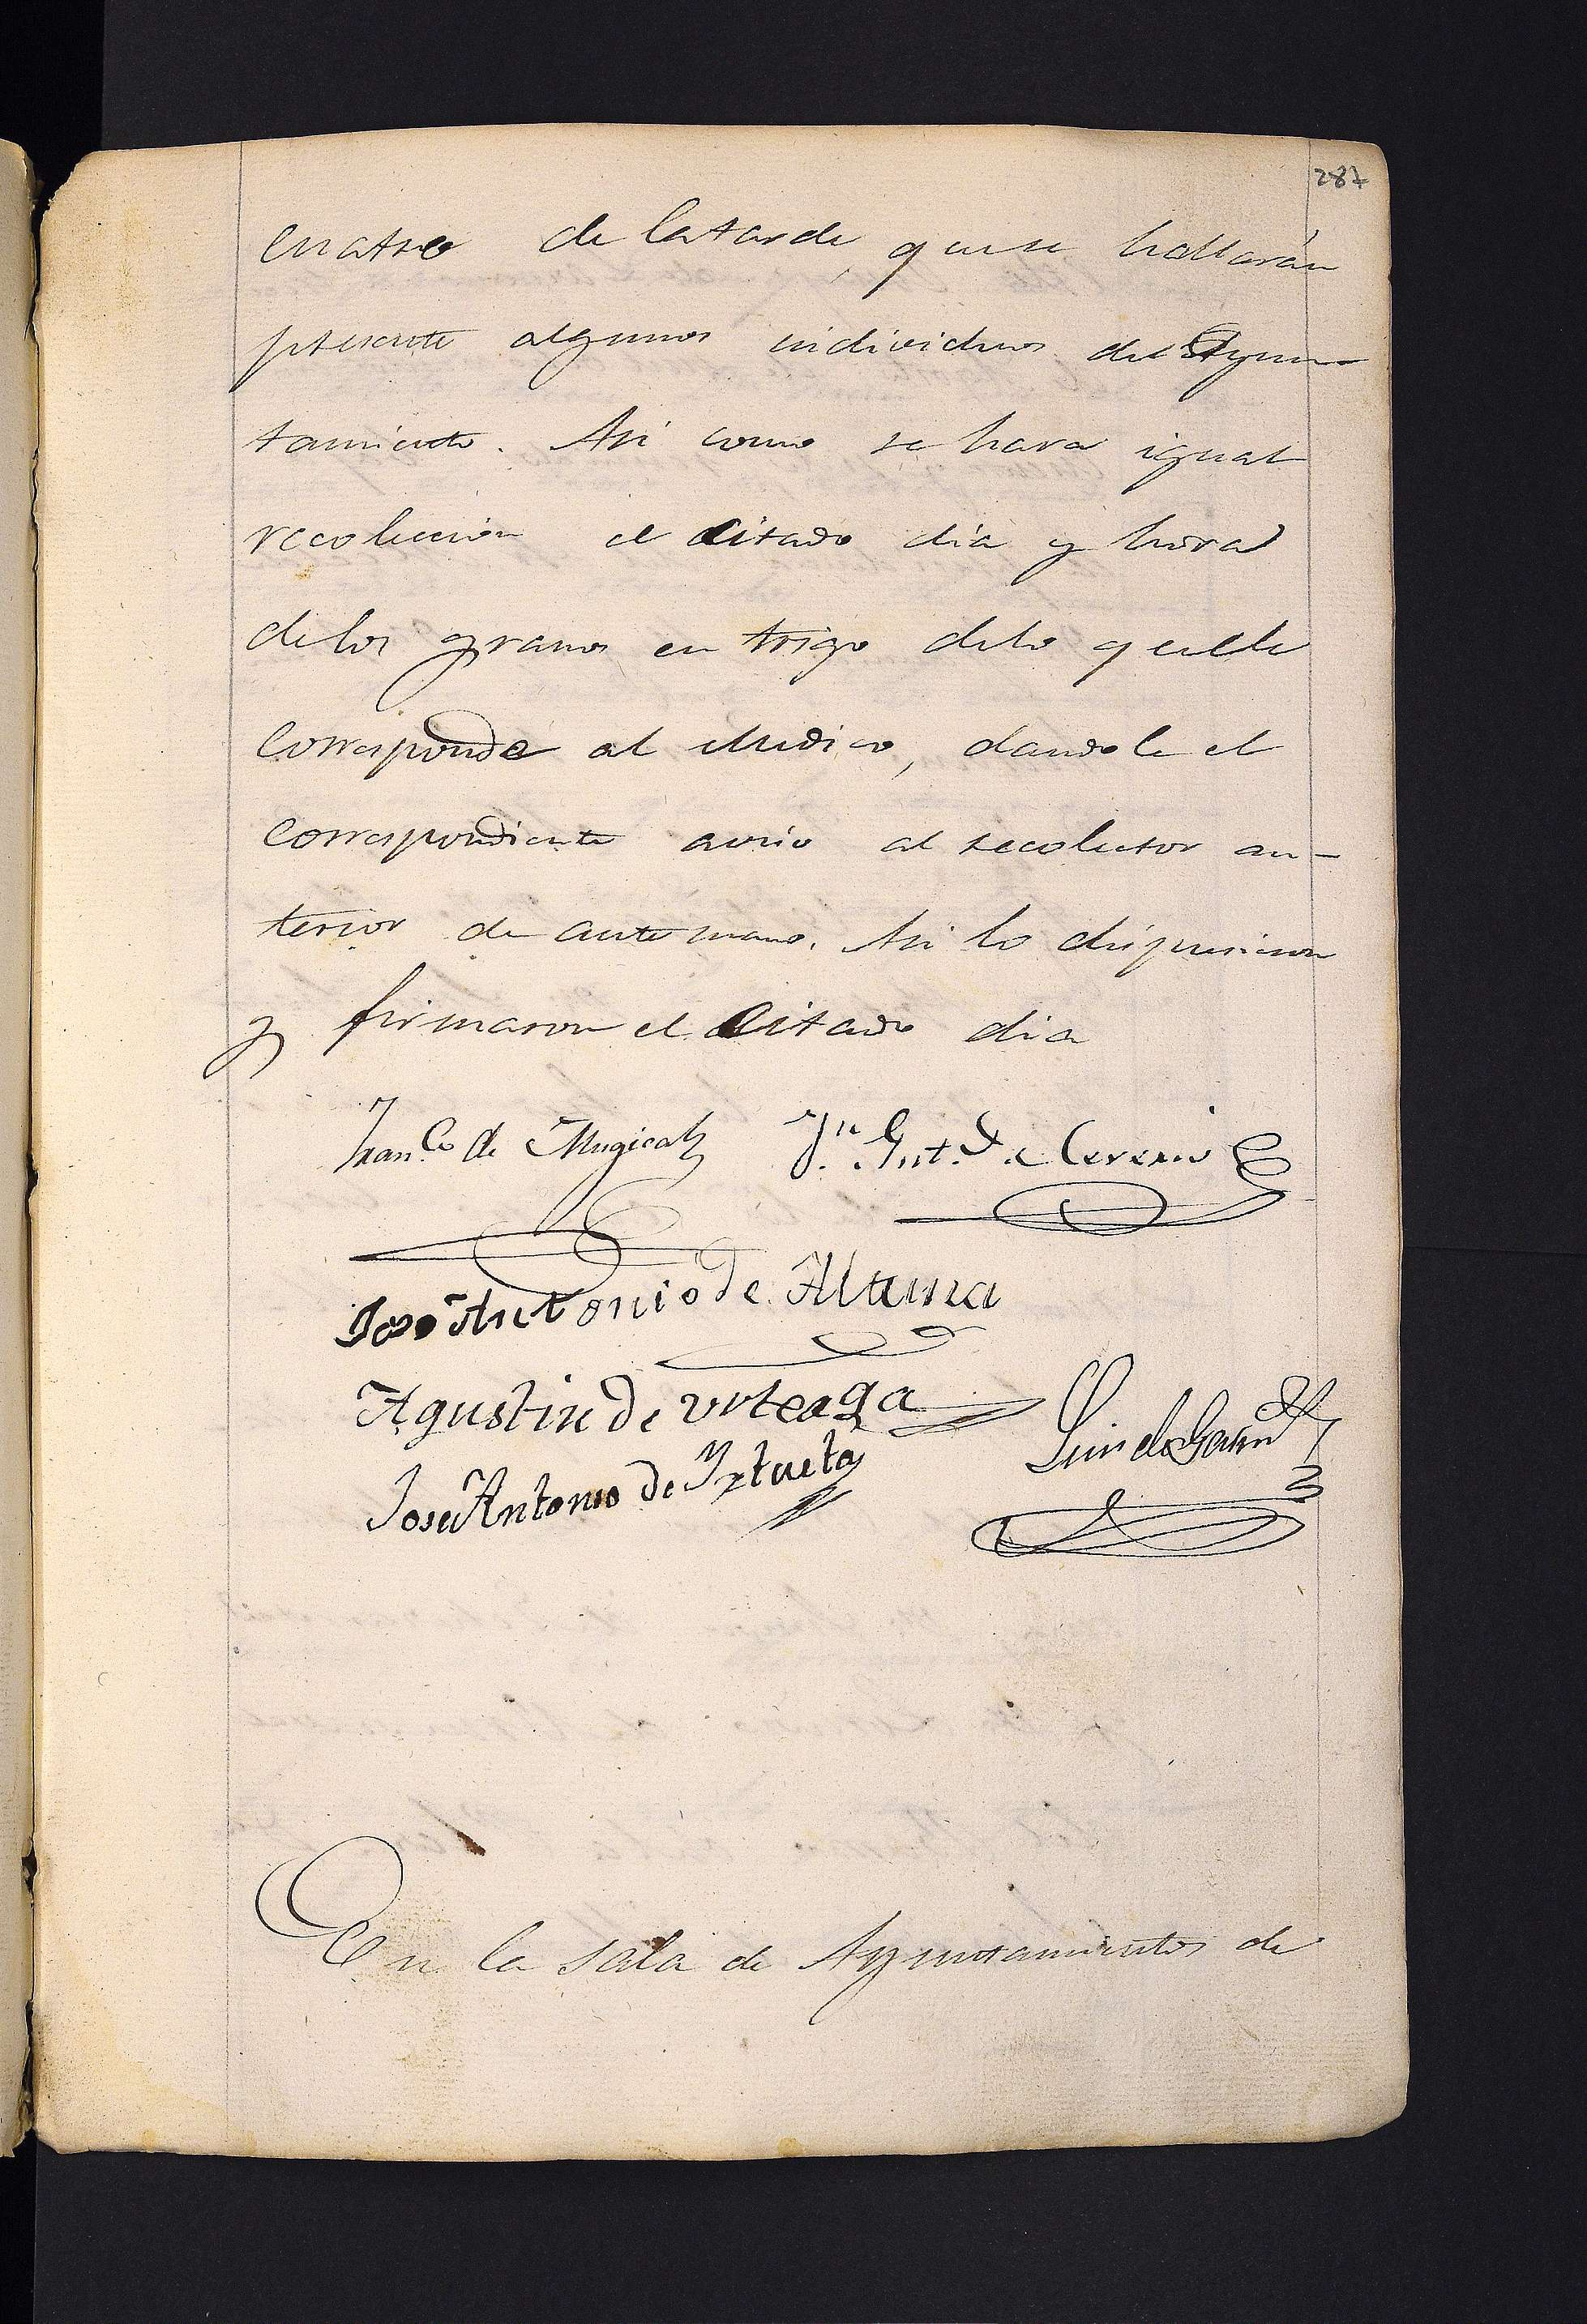 287
cuatro de la tarde, que se hallarán
presente algunos individuos del Ayun-
tamiento. Asi como se hara igual
recoleccion el citado dia y hora
de los granos en trigo de lo que le
corresponde al Medico, dandole el
correspondiente aviso al recolector an-
terior de ante mano. Asi lo dispusieron
y firmaron el citado dia
Franco de Mugica Jn Anto de Cererio
Jose Antonio de Altuna
Agustin de Urteaga
Luis de
Jose Antonio de Yztueta
En la sala de Ayuntamientos de